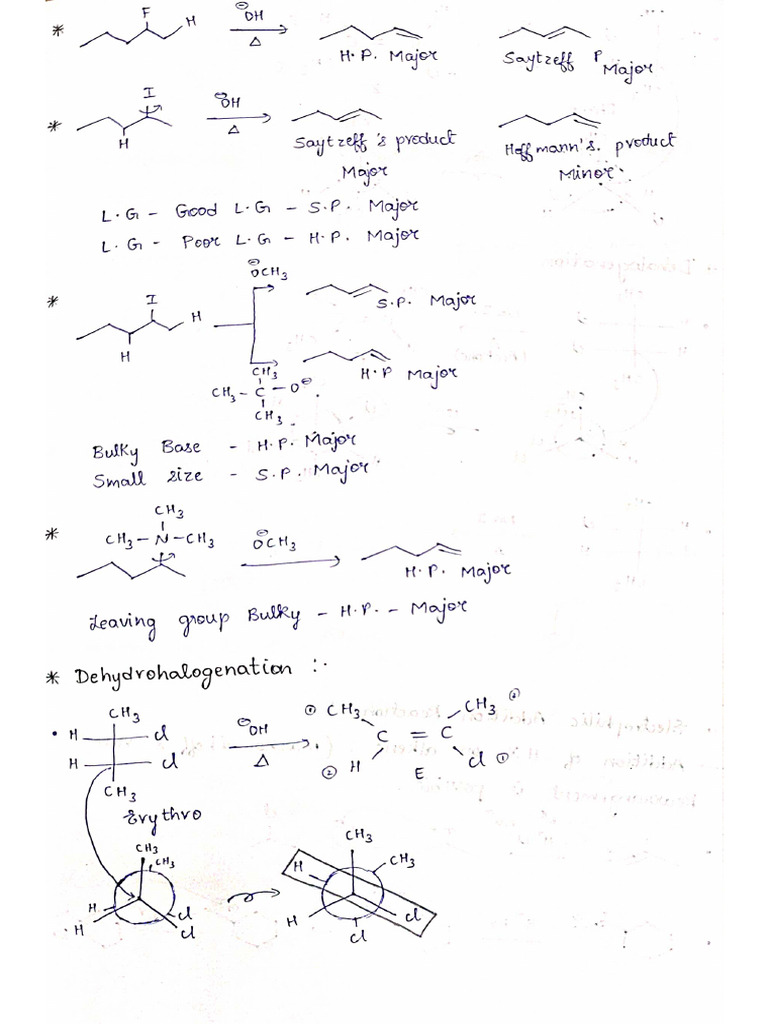 * F H ⊖OH Δ H.P. Major Saytzeff P Major
* I H ⊖OH Δ Saytzeff's product Major Hoffmann's. product Minor.
L.G - Good L.G - S.P. Major
L.G - Poor L.G - H.P. Major
* I H H
⊖OCH3 S.P. Major
CH3 CH3-C-O⊖. CH3 H.P Major
Bulky Base - H.P. Major
Small size - S.P. Major
* CH3
CH3-N-CH3 ⊖OCH3
H.P. Major
Leaving group Bulky - H.P. - Major
* Dehydrohalogenation :-
CH3 ⊖OH ① CH3 CH3 ②
H cl Δ C = C
H cl ② H E cl ①
CH3
Erythro
CH3 CH3 H H cl cl
CH3 CH3 H H cl cl